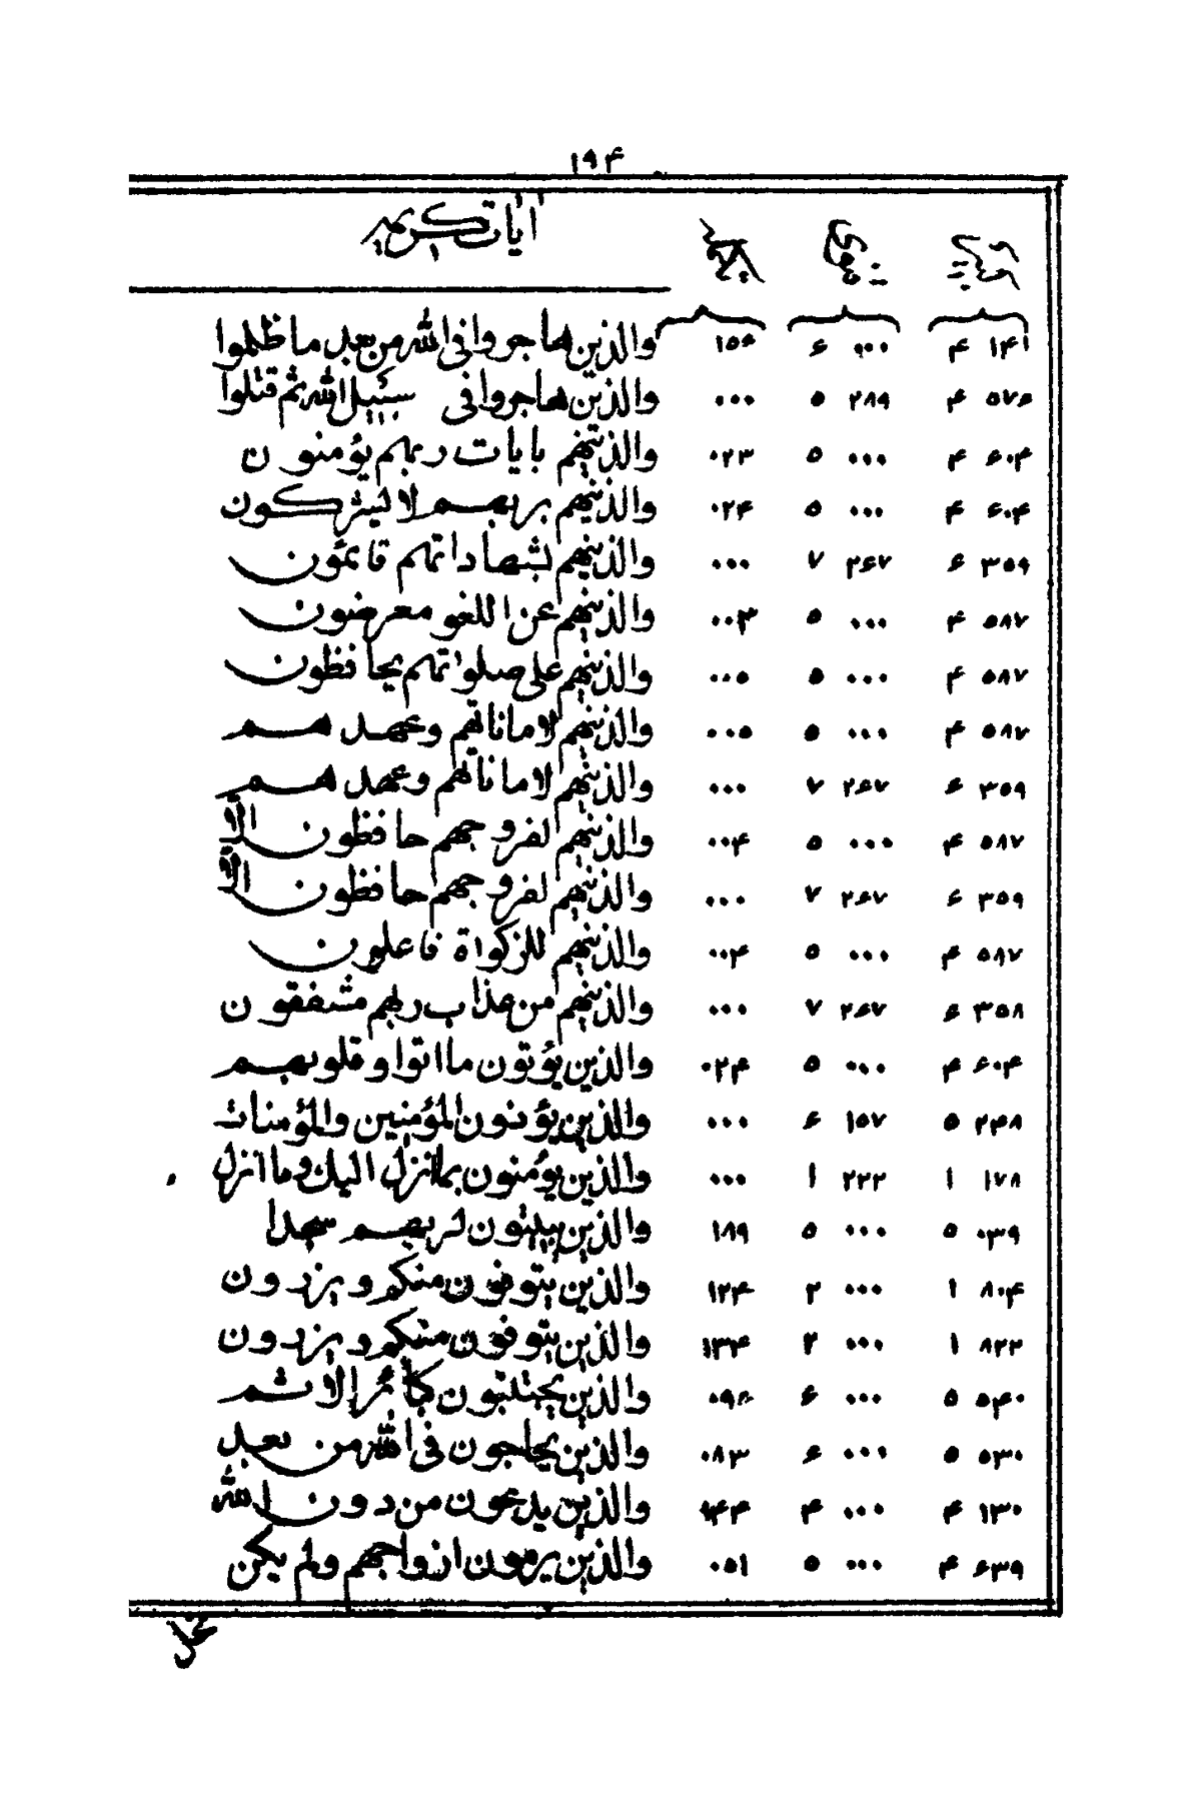 ۱۹۴
آیات کریمه
۱۴۱ ۴ ۰۰۰ ۶ ۱۵۶ والذین هاجروا فی الله من بعد ما ظلموا
۵۷۶ ۴ ۲۸۹ ۵ ۰۰۰ والذین هاجروا فی سبیل الله ثم قتلوا
۶۰۴ ۴ ۰۰۰ ۵ ۰۲۳ والذینهم بایات ربهم یؤمنون
۶۰۴ ۴ ۰۰۰ ۵ ۰۲۴ والذینهم بربهم لا یشرکون
۳۵۹ ۶ ۲۶۷ ۷ ۰۰۰ والذینهم بشهاداتهم قائمون
۵۸۷ ۴ ۰۰۰ ۵ ۰۰۳ والذینهم عن اللغو معرضون
۵۸۷ ۴ ۰۰۰ ۵ ۰۰۵ والذینهم علی صلواتهم یحافظون
۵۸۷ ۴ ۰۰۰ ۵ ۰۰۵ والذینهم لاماناتهم وعهدهم
۳۵۹ ۶ ۲۶۷ ۷ ۰۰۰ والذینهم لاماناتهم وعهدهم
۵۸۷ ۴ ۰۰۰ ۵ ۰۰۴ والذینهم لفروجهم حافظون الا
۳۵۹ ۶ ۲۶۷ ۷ ۰۰۰ والذینهم لفروجهم حافظون الا
۵۸۷ ۴ ۰۰۰ ۵ ۰۰۴ والذینهم للزکواة فاعلون
۳۵۸ ۶ ۲۶۷ ۷ ۰۰۰ والذینهم من عذاب ربهم مشفقون
۶۰۴ ۴ ۰۰۰ ۵ ۰۲۴ والذین یؤتون ما اتوا و قلوبهم
۲۴۸ ۵ ۱۵۷ ۶ ۰۰۰ والذین یؤذون المؤمنین والمؤمنات
۱۷۸ ۱ ۲۲۲ ۱ ۰۰۰ والذین یؤمنون بما انزل الیک وما انزل
۰۳۹ ۵ ۰۰۰ ۵ ۱۸۹ والذین یبیتون لربهم سجدا
۸۰۴ ۱ ۰۰۰ ۲ ۱۲۴ والذین یتوفون منکم و یزرون
۸۲۲ ۱ ۰۰۰ ۲ ۱۳۴ والذین یتوفون منکم و یزرون
۵۴۰ ۵ ۰۰۰ ۶ ۰۹۴ والذین یجتنبون کبائر الاثم
۵۳۰ ۵ ۰۰۰ ۶ ۰۸۳ والذین یحاجون فی الله من بعد
۱۳۰ ۴ ۰۰۰ ۴ والذین یدعون من دون الله
۶۳۹ ۴ ۰۰۰ ۵ ۰۵۱ والذین یرمون ازواجهم ولم یکن